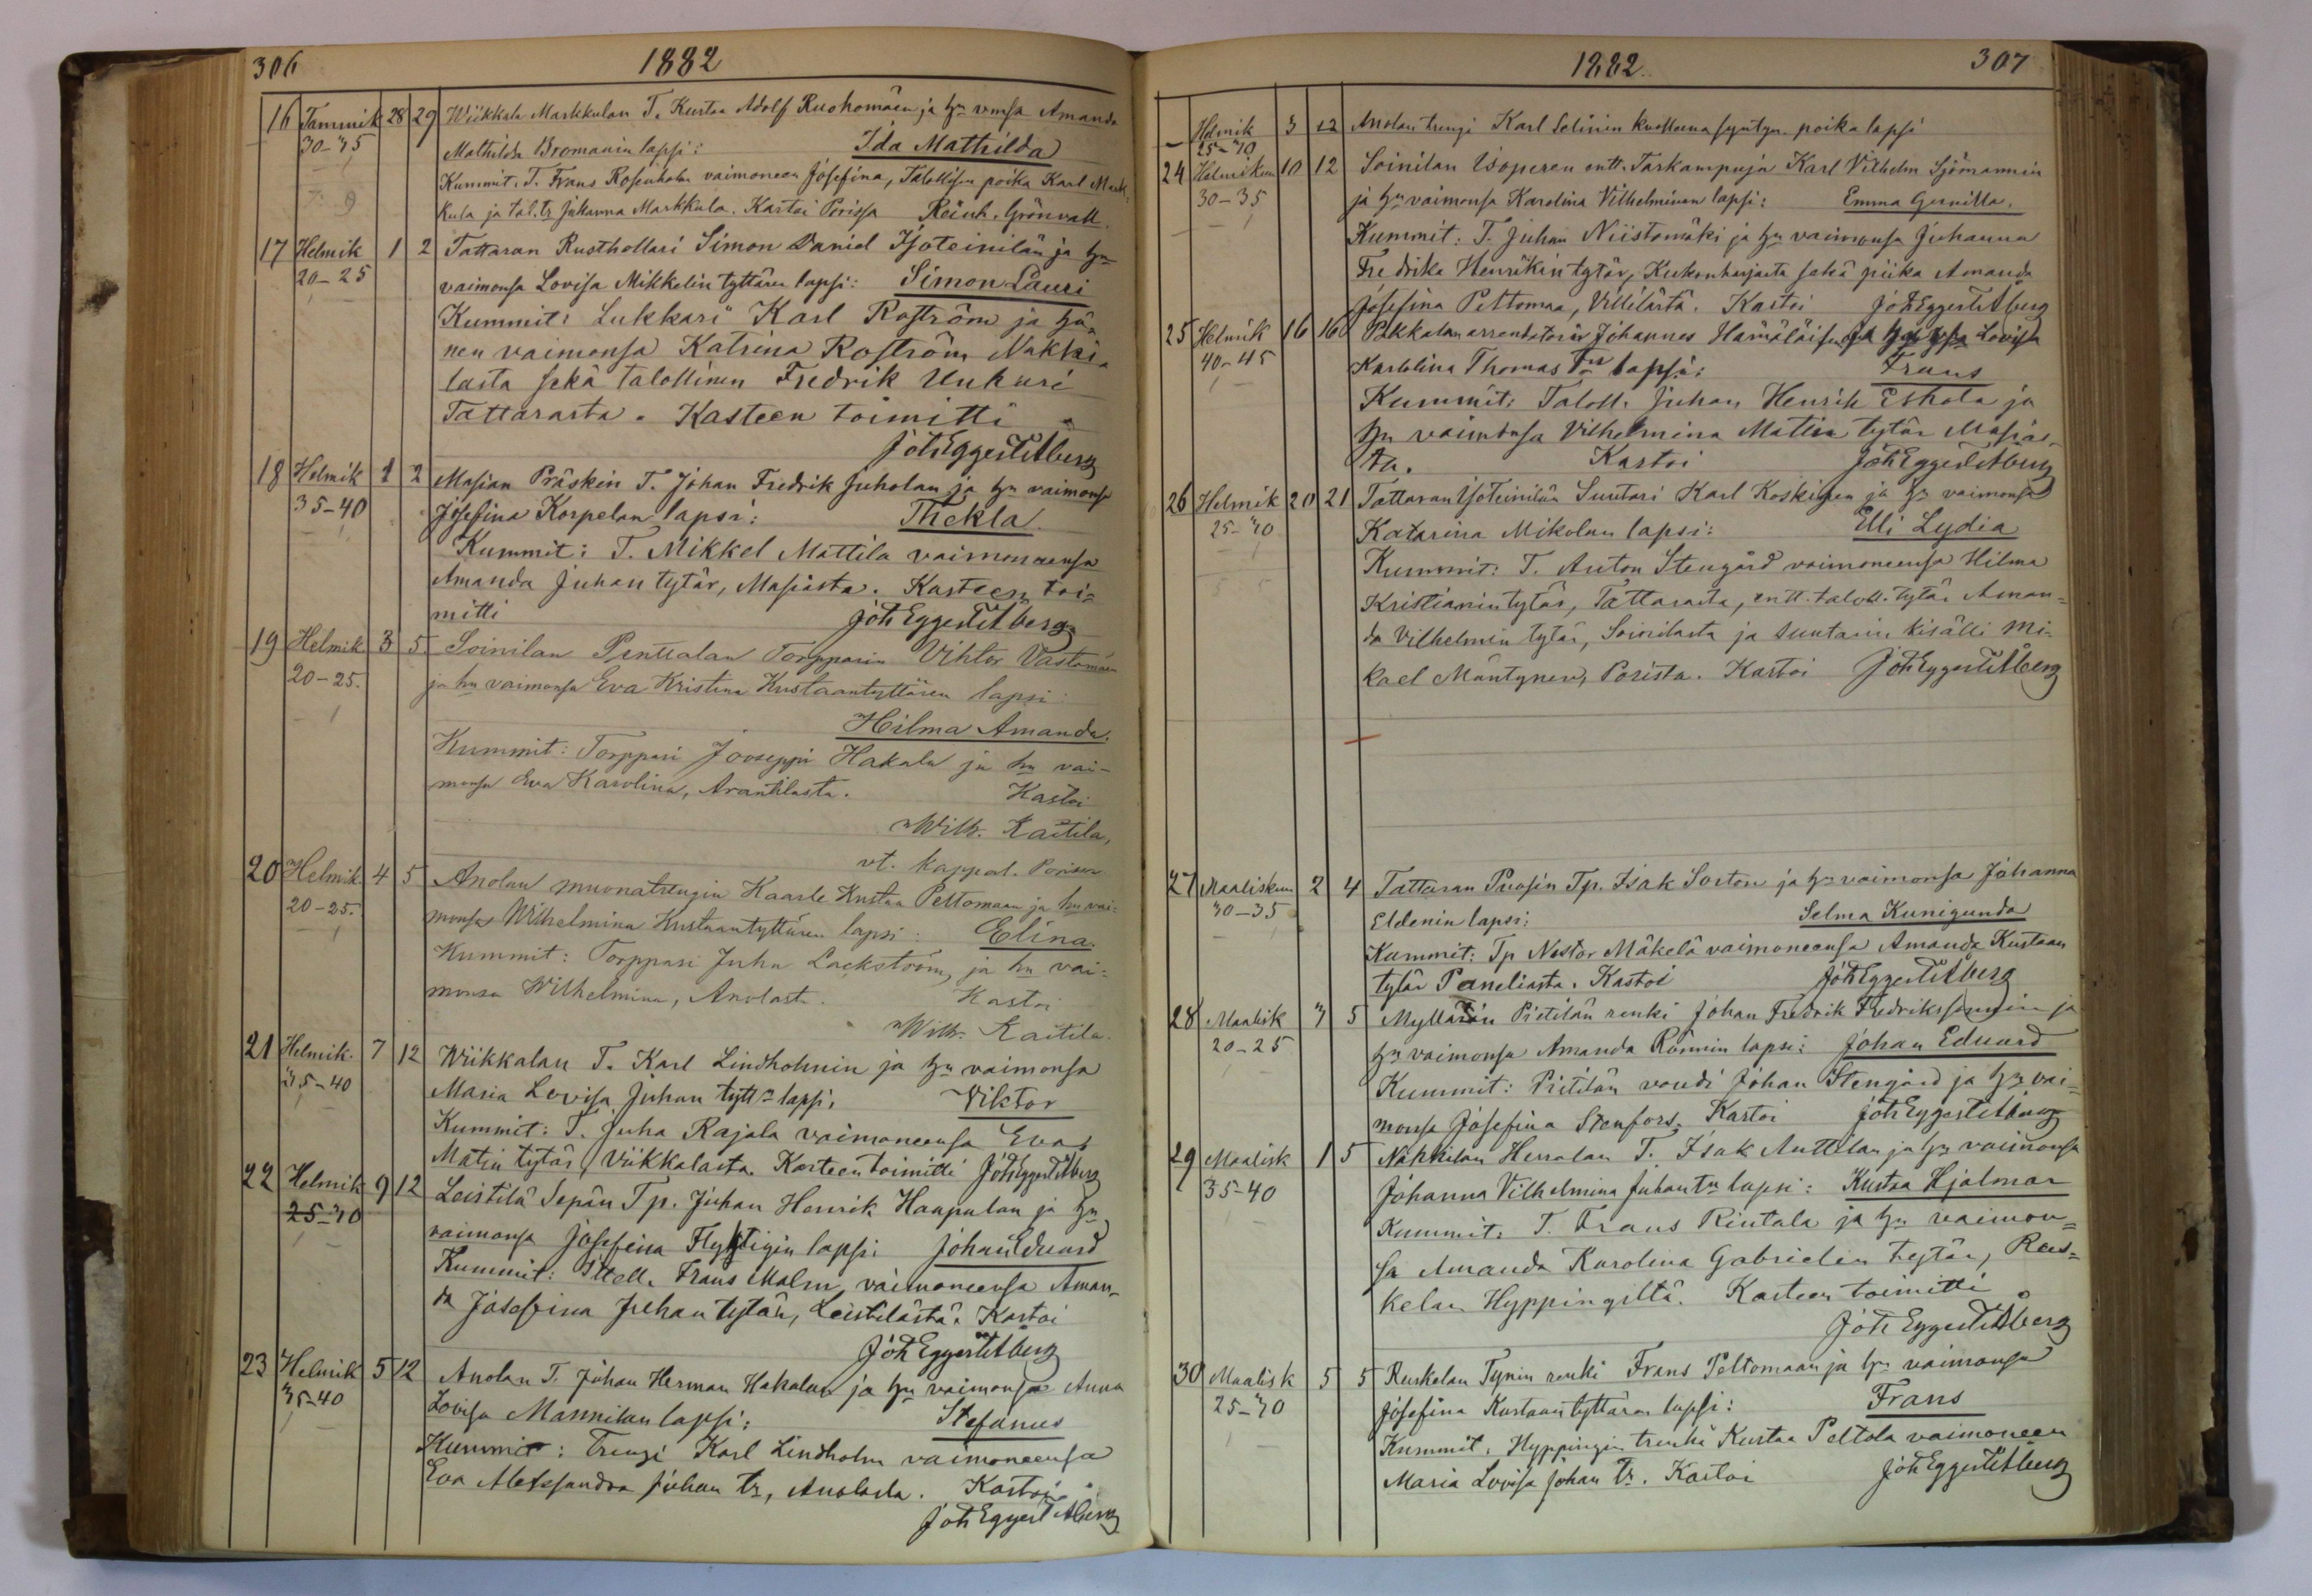 306
1882
16 Tammik 28 29 Wiikkala Markkulan T. Kustaa Adolf Ruohomäen ja hn vmsa Amanda
30-35 Mathilda Bromanin lapsi: Ida Mathilda
Kummit: T. Frans Rosenholm vaimoneen Josefina, Talollisen poika Karl Mark-
kula ja tal. tr Johanna Markkula. Kastoi Porissa Reinh. Grönvall.
17 Helmik 1 2 Tattaran Rusthollari Simon Daniel Isoteinilän ja hn
20-25 vaimonsa Lovisa Mikkelin tyttären lapsi: Simon Lauri
Kummit: Lukkari Karl Roström ja hä-
nen vaimonsa Katrina Roström Nakki-
lasta sekä talollinen Fredrik Uukuri
Tattarasta. Kasteen toimitti
Joh Eggert Åberg
18 Helmik 1 2 Masian Präskin T. Johan Fredrik Juholan ja hn vaimonsa
35-40 Josefina Korpelan lapsi: Thekla.
Kummit: T. Mikkel Mattila vaimoneensa
Amanda Juhan tytär, Masiasta. Kasteen toi-
mitti Joh Eggert Åberg
19 Helmik 3 5 Soinilan Penttalan Torpparin Vihtor Vastamäen
20-25. ja hn vaimonsa Eva Kristina Kustaantyttären lapsi:
Hilma Amanda.
Kummit: Torppari Jooseppi Hakala ja hn vai-
monsa Eva Karolina, Arantilasta. Kastoi
Wilh. Kaitila,
vt. kappal. Porissa
20 Helmik. 4 5 Anolan muonatrengin Kaarle Kustaa Peltomaan ja hn vai-
20-25. monsa Wilhelmina Kustaantyttären lapsi: Elina.
Kummit: Torppari Juha Lackström, ja hn vai-
monsa Wilhelmina, Anolasta. Kastoi
Wilh. Kaitila.
21 Helmik. 7 12 Wiikkalan T. Karl Lindholmin ja hn vaimonsa
35-40 Maria Lovisa Juhan tytt n lapsi, Viktor
Kummit: T. Juha Rajala vaimoneensa Eva
Matin tytär, Viikkalasta. Kasteen toimitti Joh Eggert Åberg
22 Helmik 9 12 Leistilä Sepän Tp. Juhan Henrik Haapalan ja hn
25-30 vaimonsa Josefina Flygtigin lapsi: Johan Eduard
Kummit: Itsell. Frans Malm, vaimoneensa Aman-
da Josefina Juhan tytär, Leistilästä. Kastoi
Joh Eggert Åberg
23 Helmik 5 12 Anolan T. Johan Herman Hakalan ja hn vaimonsa Anna
35-40 Lovisa Mannilan lapsi: Stefanus
Kummit: Trengi Karl Lindholm vaimoneensa
Eva Aleksandra Juhan tr, Anolasta. Kastoi
Joh Eggert Åberg
1882.
307
- Helmik 3 12 Anolan trengi Karl Selinin kuolleena syntyn. poika lapsi
25-30
24 Helmikuu 10 12 Soinilan Isoperen entt. Tarkampuja Karl Vilhelm Sjömannin
30-35 ja hn vaimonsa Karolina Vilhelminan lapsi: Emma Gunilla.
Kummit: T. Juhan Niistomäki ja hn vaimonsa Johanna
Fredrika Henrikin tytär, Kukonharjasta sekä piika Amanda
Josefina Peltomaa, Villilästä. Kastoi Joh Eggert Åberg
25 Helmik 16 16 Pakkalan arrentatorin Johannes Hämäläisen ja hn vsa Lovisa
40-45 Karolina Thomas Trn lapsi: Frans
Kummit: Taloll. Juhan Henrik Eskola ja
hn vaimonsa Vilhelmina Matin tytär Masias-
ta. Kastoi Joh Eggert Åberg
26 Helmik 20 21 Tattaran Isoteinilän Suutari Karl Koskinen ja hn vaimonsa
25-30 Katarina Mikolan lapsi: Elli Lydia
Kummit: T. Anton Stengård vaimoneensa Hilma
Kristianin tytär, Tattarasta, entt. taloll. tytär Aman-
da Vilhelmin tytär, Soinilasta ja Suutarin kisälli Mi-
kael Mäntynen, Porista. Kastoi Joh Eggert Åberg
27 Maaliskuu 2 4 Tattaran Puosin Tp. Isak Sorton ja hn vaimonsa Johanna
30-35 Eldenin lapsi: Selma Kunigunda
Kummit: Tp Nestor Mäkelä vaimoneensa Amanda Kustaan
tytär Paneliasta. Kastoi Joh Eggert Åberg
28 Maalisk 3 5 Myllärin Pietilän renki Johan Fredrik Fredrikssonin ja
20-25 hn vaimonsa Amanda Rönnin lapsi: Johan Eduard
Kummit: Pietilän voudi Johan Stengård ja hn vai-
monsa Josefina Stenfors. Kastoi Joh Eggert Åberg
29 Maalisk 1 5 Nakkilan Herralan T. Isak Anttilan ja hn vaimonsa
35-40 Johanna Vilhelmina Juhan tn lapsi: Kustaa Hjalmar
Kummit: T. Frans Rintala ja hn vaimon-
sa Amanda Karolina Gabrielin tytär, Rus-
kelan Hyppingiltä. Kasteen toimitti
Joh Eggert Åberg
30 Maalisk 5 5 Ruskelan Tynin renki Frans Peltomaan ja hn vaimonsa
25-30 Josefina Kustaan tyttären lapsi: Frans
Kummit: Hyppingin trenki Kustaa Peltola vaimoneen
Maria Lovisa Johan tr. Kastoi Joh Eggert Åberg